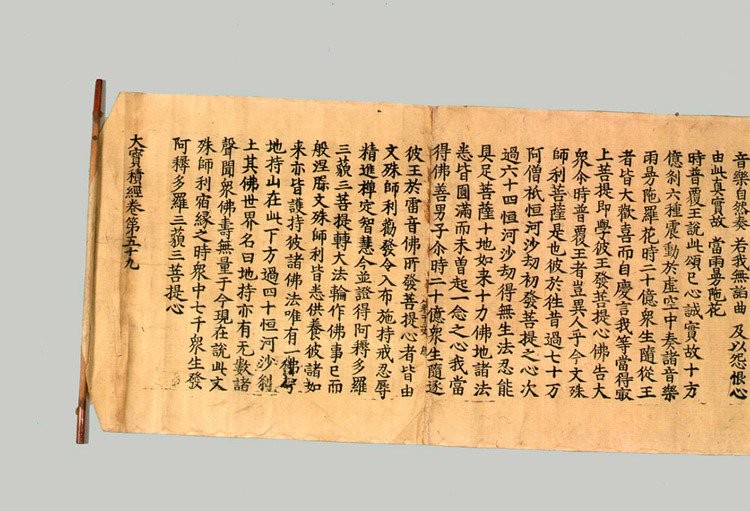 音樂自然奏 若我無諂曲 及以怨恨心
由此真實故 當雨曼陁花
時普覆王說此頌已心誠實故十方
億刹六種震動於虛空中奏諸音樂
雨曼陁羅花時二十億衆生隨從王
者皆大歡喜而自慶言我等當得冣
上菩提即學彼王發菩提心佛告大
衆尒時普覆王者豈異人乎今文殊
師利菩薩是也彼於往昔過七十万
阿僧祇恒河沙劫初發菩提之心次
過六十四恒河沙劫得無生法忍能
具足菩薩十地如来十力佛地諸法
悉皆圓滿而未曾起一念之心我當
得佛善男子尒時二十億衆生隨逐
彼王於雷音佛所發菩提心者皆由
文殊師利勸發令入布施持戒忍辱
精進禪定智慧今並證得阿耨多羅
三藐三菩提轉大法輪作佛事已而
般涅槃文殊師利皆悉供養彼諸如
来亦皆護持彼諸佛法唯有一佛号
地持山在此下方過四十恒河沙刹
土其佛世界名曰地持亦有无數諸
聲聞衆佛壽無量于今現在說此文
殊師利宿縁之時衆中七千衆生發
阿耨多羅三藐三菩提心
大寶積經卷第五十九